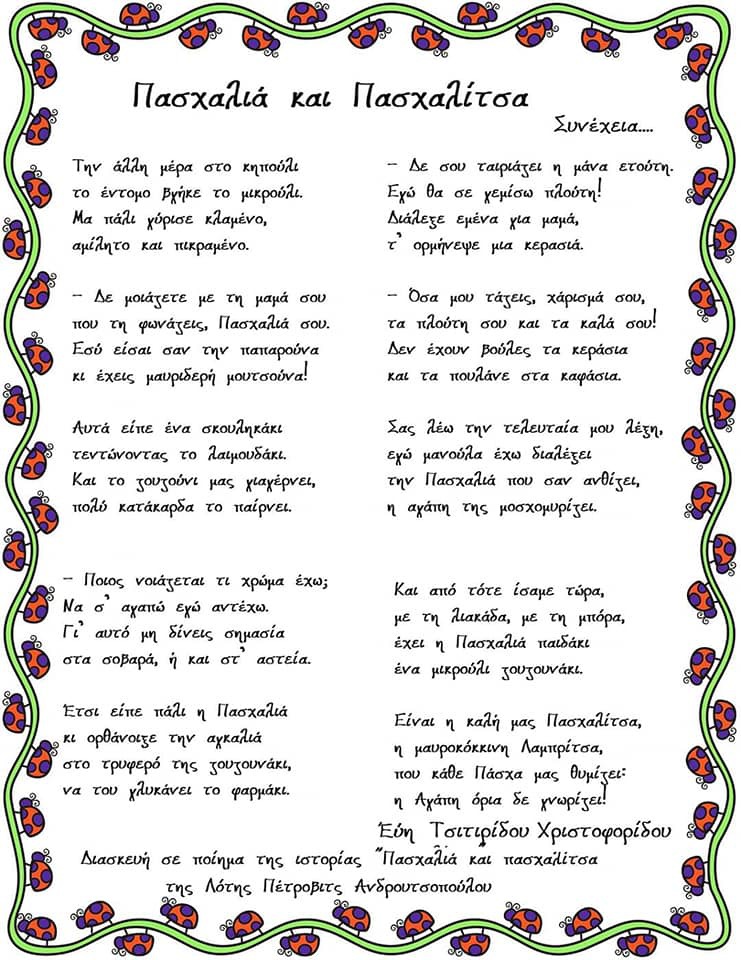 Πασχαλιά και Πασχαλίτσα
Συνέχεια....
Την άλλη μέρα στο κηπούλι
το έντομο βγήκε το μικρούλι.
Μα πάλι γύρισε κλαμένο,
αμίλητο και πικραμένο.
– Δε μοιάζετε με τη μαμά σου
που τη φωνάζεις, Πασχαλιά σου.
Εσύ είσαι σαν την παπαρούνα
κι έχεις μαυριδερή μουτσούνα!
Αυτά είπε ένα σκουληκάκι
τεντώνοντας το λαιμουδάκι.
Και το ζουζούνι μας γιαγέρνει,
πολύ κατάκαρδα το παίρνει.
– Ποιος νοιάζεται τι χρώμα έχω;
Να σ' αγαπώ εγώ αντέχω.
Γι' αυτό μη δίνεις σημασία
στα σοβαρά, ή και στ' αστεία.
Έτσι είπε πάλι η Πασχαλιά
κι ορθάνοιξε την αγκαλιά
στο τρυφερό της ζουζουνάκι,
να του γλυκάνει το φαρμάκι.
– Δε σου ταιριάζει η μάνα ετούτη.
Εγώ θα σε γεμίσω πλούτη!
Διάλεξε εμένα για μαμά,
τ' ορμήνεψε μια κερασιά.
– Όσα μου τάζεις, χάρισμά σου,
τα πλούτη σου και τα καλά σου!
Δεν έχουν βούλες τα κεράσια
και τα πουλάνε στα καφάσια.
Σας λέω την τελευταία μου λέξη,
εγώ μανούλα έχω διαλέξει
την Πασχαλιά που σαν ανθίζει,
η αγάπη της μοσχομυρίζει.
Και από τότε ίσαμε τώρα,
με τη λιακάδα, με τη μπόρα,
έχει η Πασχαλιά παιδάκι
ένα μικρούλι ζουζουνάκι.
Είναι η καλή μας Πασχαλίτσα,
η μαυροκόκκινη Λαμπρίτσα,
που κάθε Πάσχα μας θυμίζει:
η Αγάπη όρια δε γνωρίζει!
Εύη Τσιτιρίδου Χριστοφορίδου
Διασκευή σε ποίημα της ιστορίας "Πασχαλιά και πασχαλίτσα"
της Λότης Πέτροβιτς Ανδρουτσοπούλου